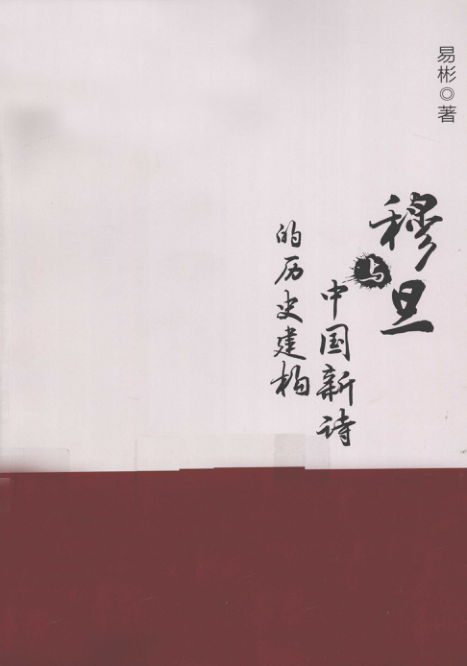 易彬◎著
穆旦
与
中国新诗
的历史建构